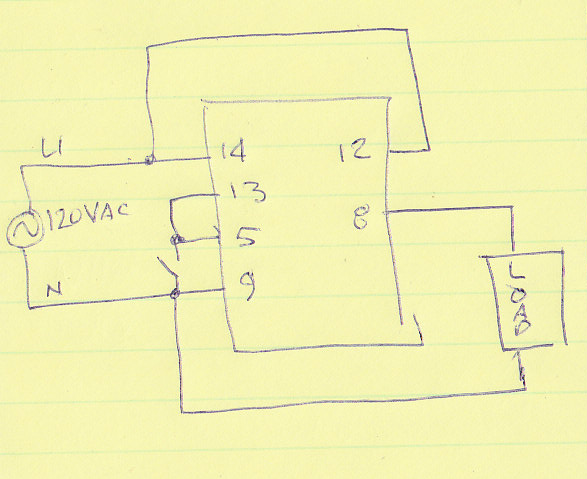 L1
14
12
13
120VAC
8
5
N
9
LOAD